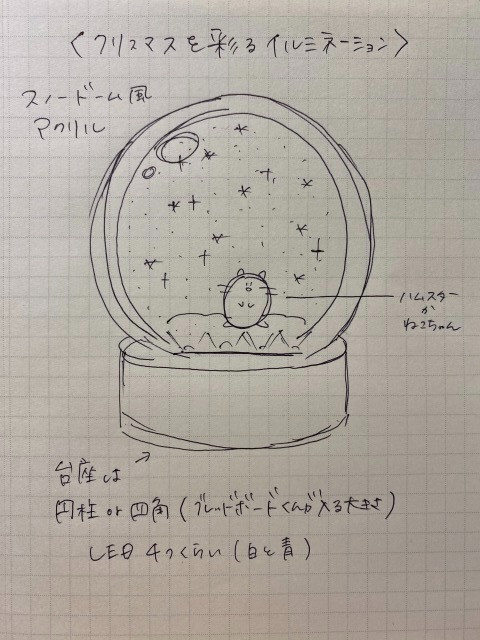 〈クリスマスを彩るイルミネーション〉
スノードーム風
アクリル
ハムスター
か
ねこちゃん
台座は
円柱 or 四角 (ブレッドボードくんが入る大きさ)
LED 4つくらい (白と青)